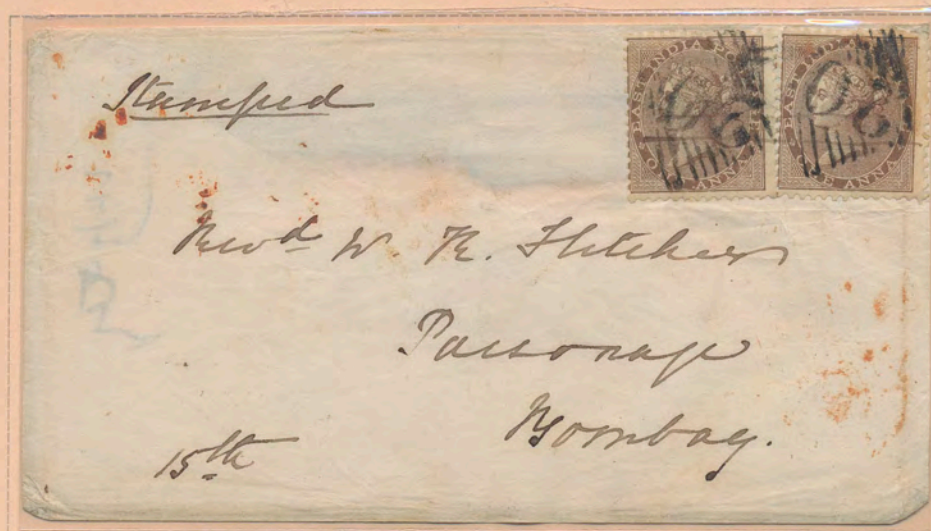 Stamped
EAST INDIA PO
ONE ANNA
EAST INDIA
ONE ANNA
Revd W. K. Fletcher
Parsonage
Bombay.
15th